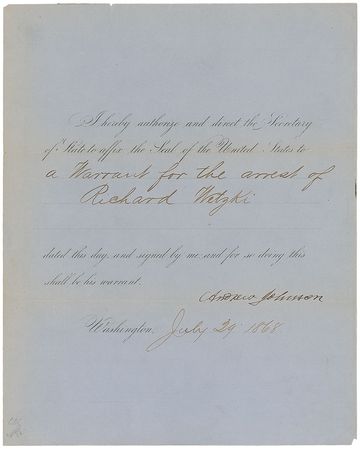 I hereby authorize and direct the Secretary
of State to affix the Seal of the United States to
a Warrant for the arrest of
Richard Wotzki
dated this day, and signed by me, and for so doing this
shall be his warrant.
Andrew Johnson
Washington, July 29, 1868.